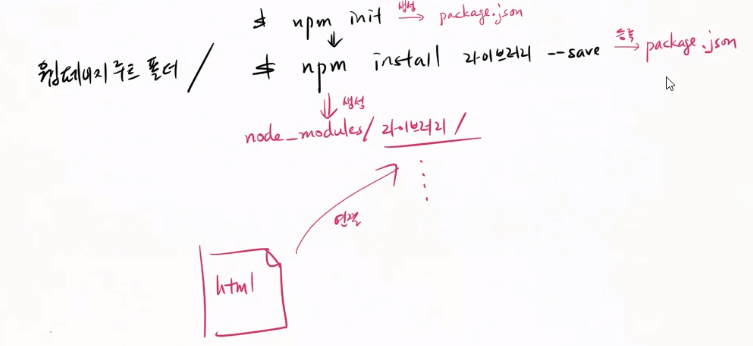 $ npm init 생성 → package.json
웹페이지 루트 폴더 / $ npm install 라이브러리 --save 등록 → package.json
생성
node_modules/ 라이브러리 /
연결
html